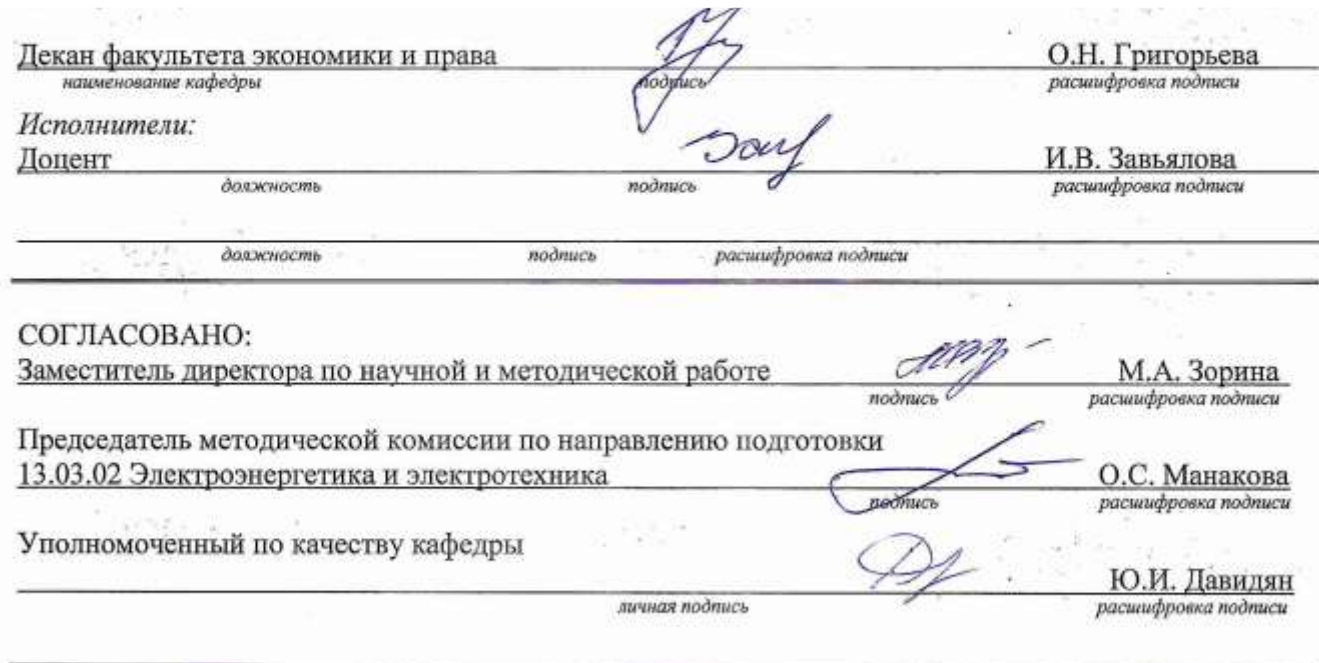 Декан факультета экономики и права О.Н. Григорьева
наименование кафедры подпись расшифровка подписи
Исполнители:
Доцент И.В. Завьялова
должность подпись расшифровка подписи
должность подпись расшифровка подписи
СОГЛАСОВАНО:
Заместитель директора по научной и методической работе М.А. Зорина
подпись расшифровка подписи
Председатель методической комиссии по направлению подготовки
13.03.02 Электроэнергетика и электротехника О.С. Манакова
подпись расшифровка подписи
Уполномоченный по качеству кафедры
Ю.И. Давидян
личная подпись расшифровка подписи